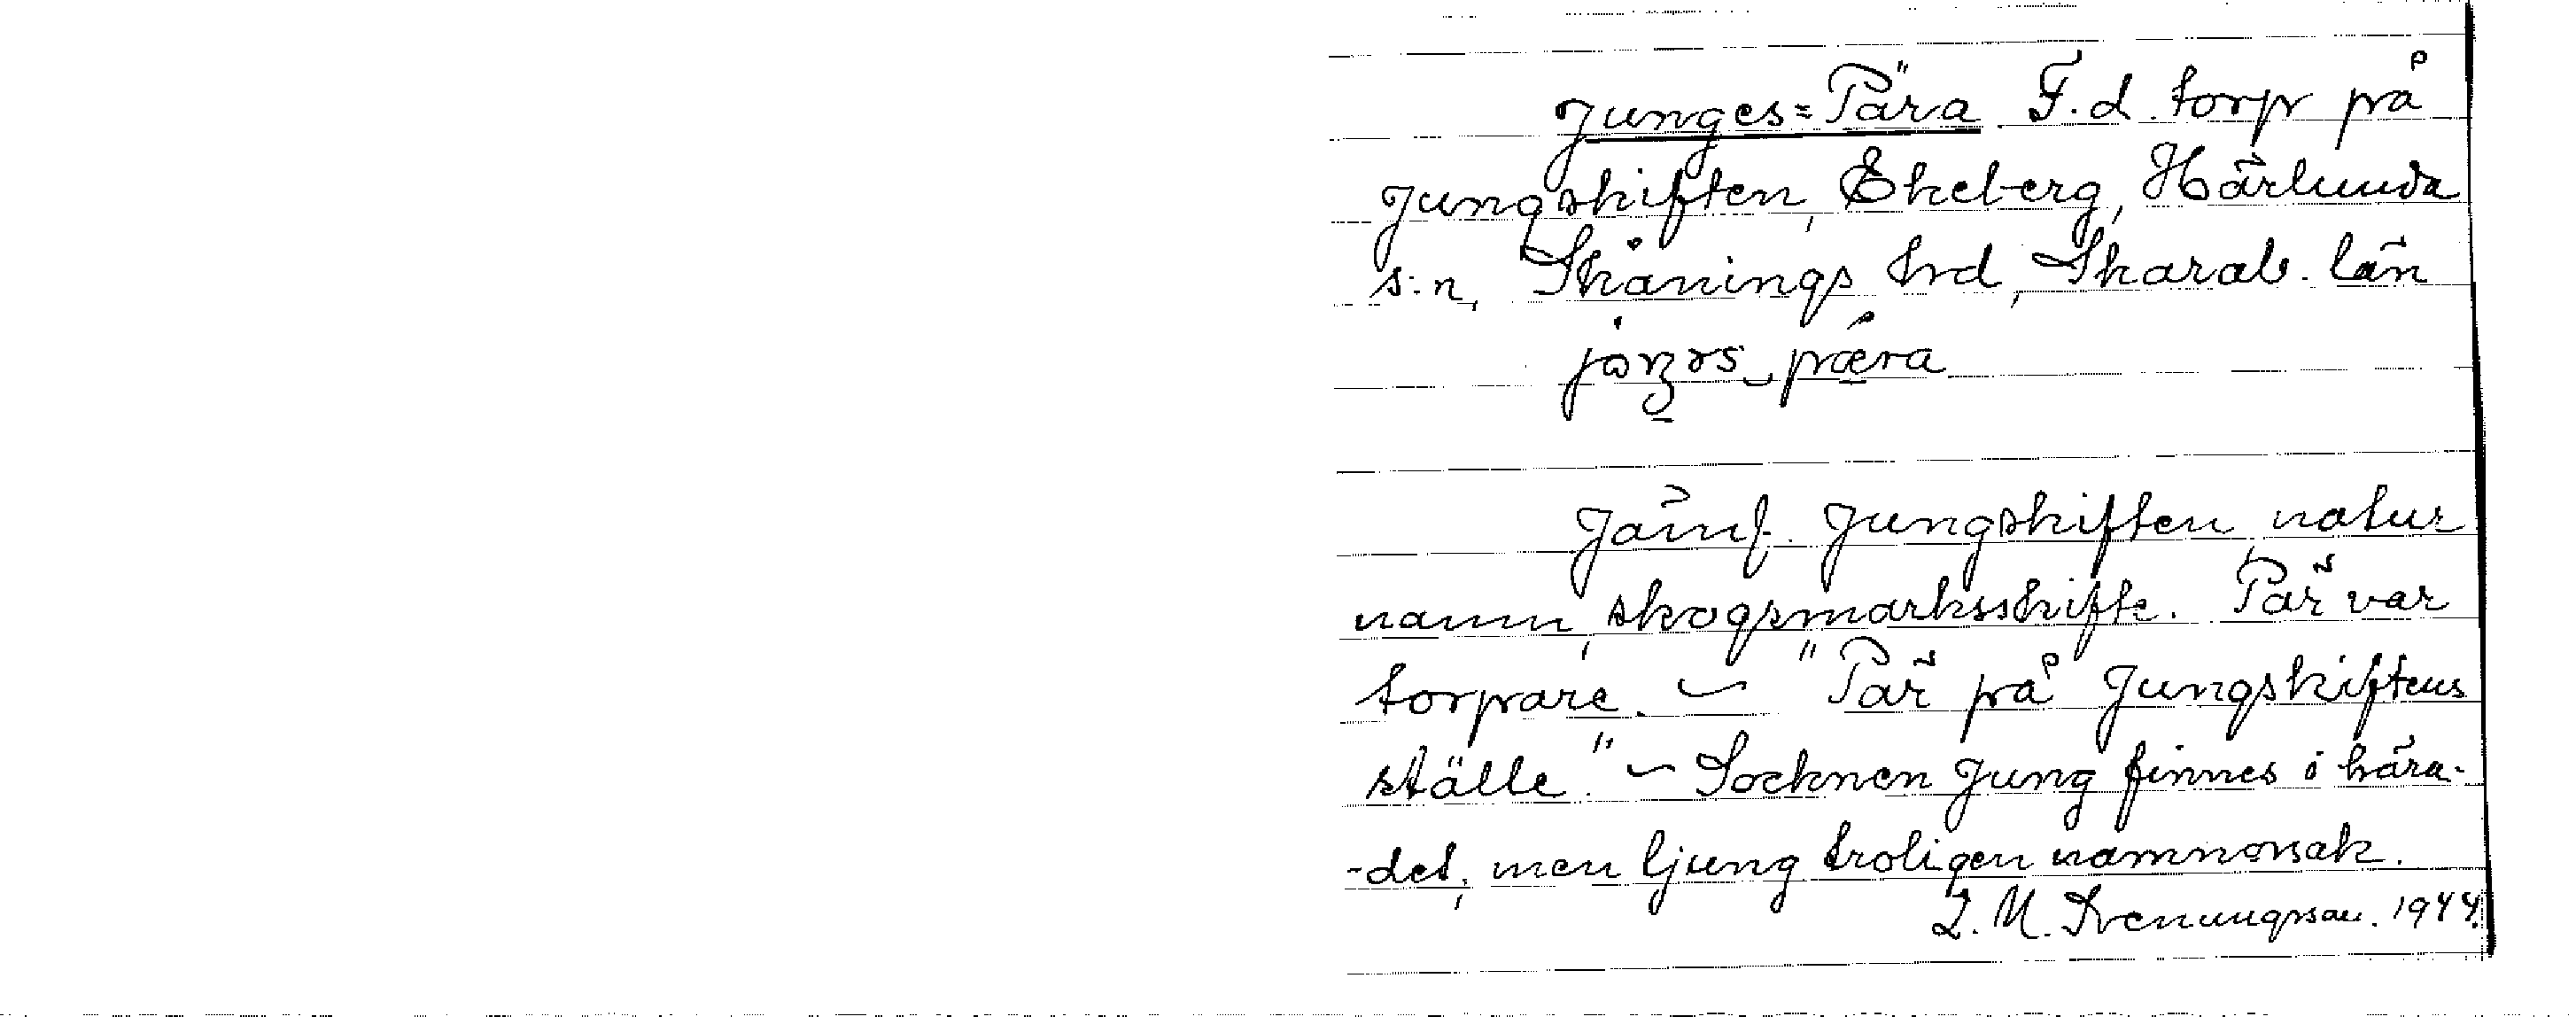 Junges=Pära F.d. torp på
Jungskiften, Ekeberg, Härlunda
s:n, Skånings hrd, Skarab. län
Jämf. Jungskiften, natur
namn, skogsmarksskifte. Pär var
torpare. – "Pär på Jungskiftens
ställe." – Socknen Jung finnes i hära-
-det, men ljung troligen namnorsak.
L. M. Svenungsson. 1944.